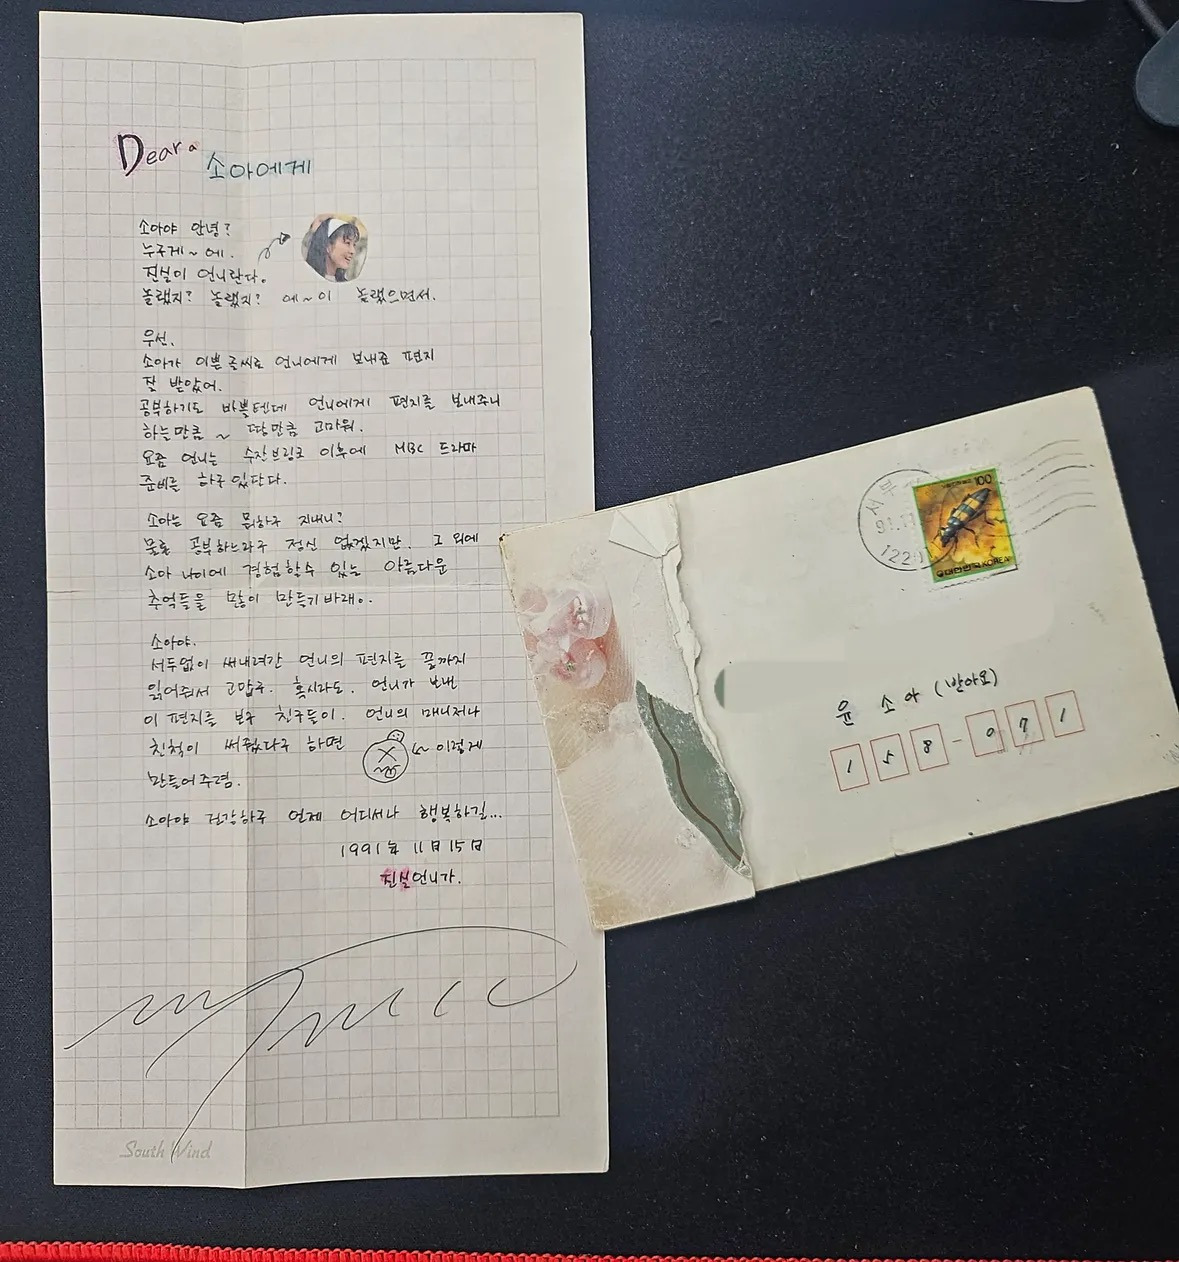 Dear a
소아에게
소아야 안녕?
누구게~ 에.
진실이 언니란다.
놀랬지? 놀랬지? 에~이 놀랬으면서.
우선.
소아가 이쁜 글씨로 언니에게 보내준 편지
잘 받았어.
공부하기도 바쁠텐데 언니에게 편지를 보내주니
하늘만큼 ~ 땅만큼 고마워.
요즘 언니는 수잔브링크 이후에 MBC 드라마
준비를 하구 있단다.
소아는 요즘 뭐하구 지내니?
물론 공부하느라구 정신 없겠지만. 그 외에
소아 나이에 경험할수 있는 아름다운
추억들을 많이 만들기 바래.
소아야.
서두없이 써내려간 언니의 편지를 끝까지
읽어줘서 고맙구. 혹시라도. 언니가 보낸
이 편지를 보구 친구들이. 언니의 매니저나
친척이 써줬다구 하면 이렇게
만들어주렴.
소아야 건강하구 언제 어디서나 행복하길...
1991年 11日 15日
진실언니가.
South Wind
서부
91.11
122
100
대한민국 KOREA
윤 소 아 (받아요)
158-071